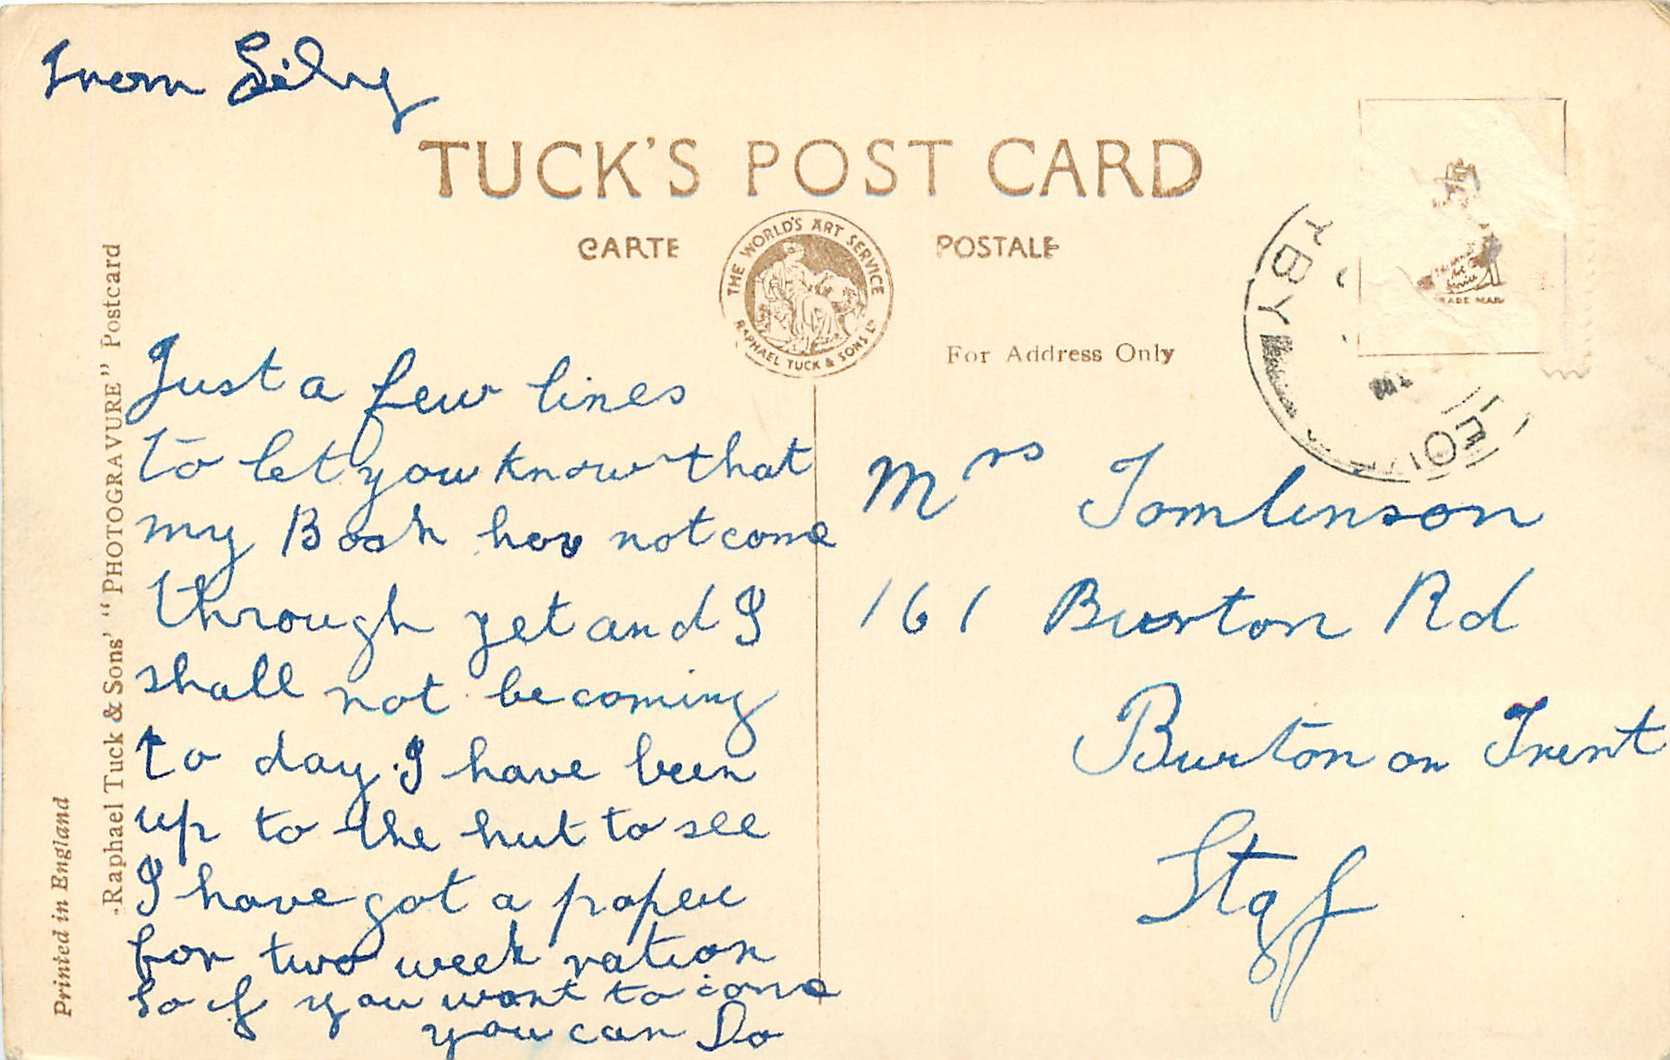 From Silvy
TUCK'S POST CARD
CARTE POSTALE
THE WORLD'S ART SERVICE
RAPHAEL TUCK & SONS LTD
For Address Only
TRADE MARK
Just a few lines
to let you know that
my Book has not come
through yet and I
shall not be coming
to day. I have been
up to the hut to see
I have got a paper
for two week ration
So if you want to come
you can Do
Mrs Tomlinson
161 Burton Rd
Burton on Trent
Staf
Raphael Tuck & Sons' "PHOTOGRAVURE" Postcard
Printed in England